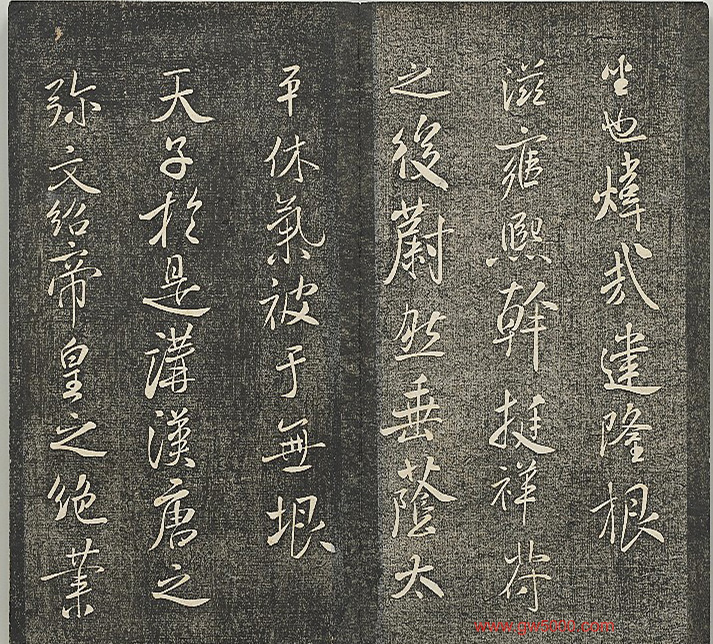 坐也煒哉建隆根
滋雍熙幹挺祥符
之後蔚然垂蔭太
平休氣被于無垠
天子於是講漢唐之
弥文紹帝皇之絕業
www.gw5000.com